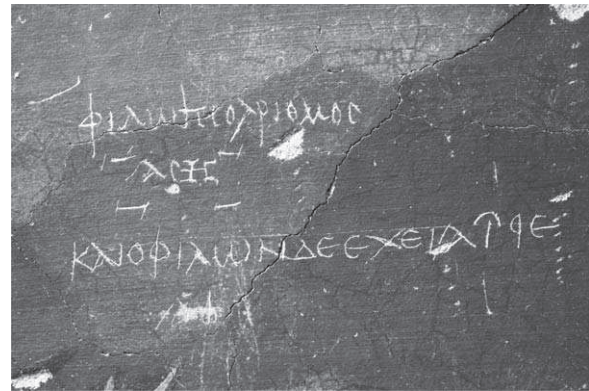 φιλωηϲοαριθμοϲ
ΑϹΗ
ΚΑΙΟΦΙΛΩΝΔΕΕΧΕΙΑϠϙΕ